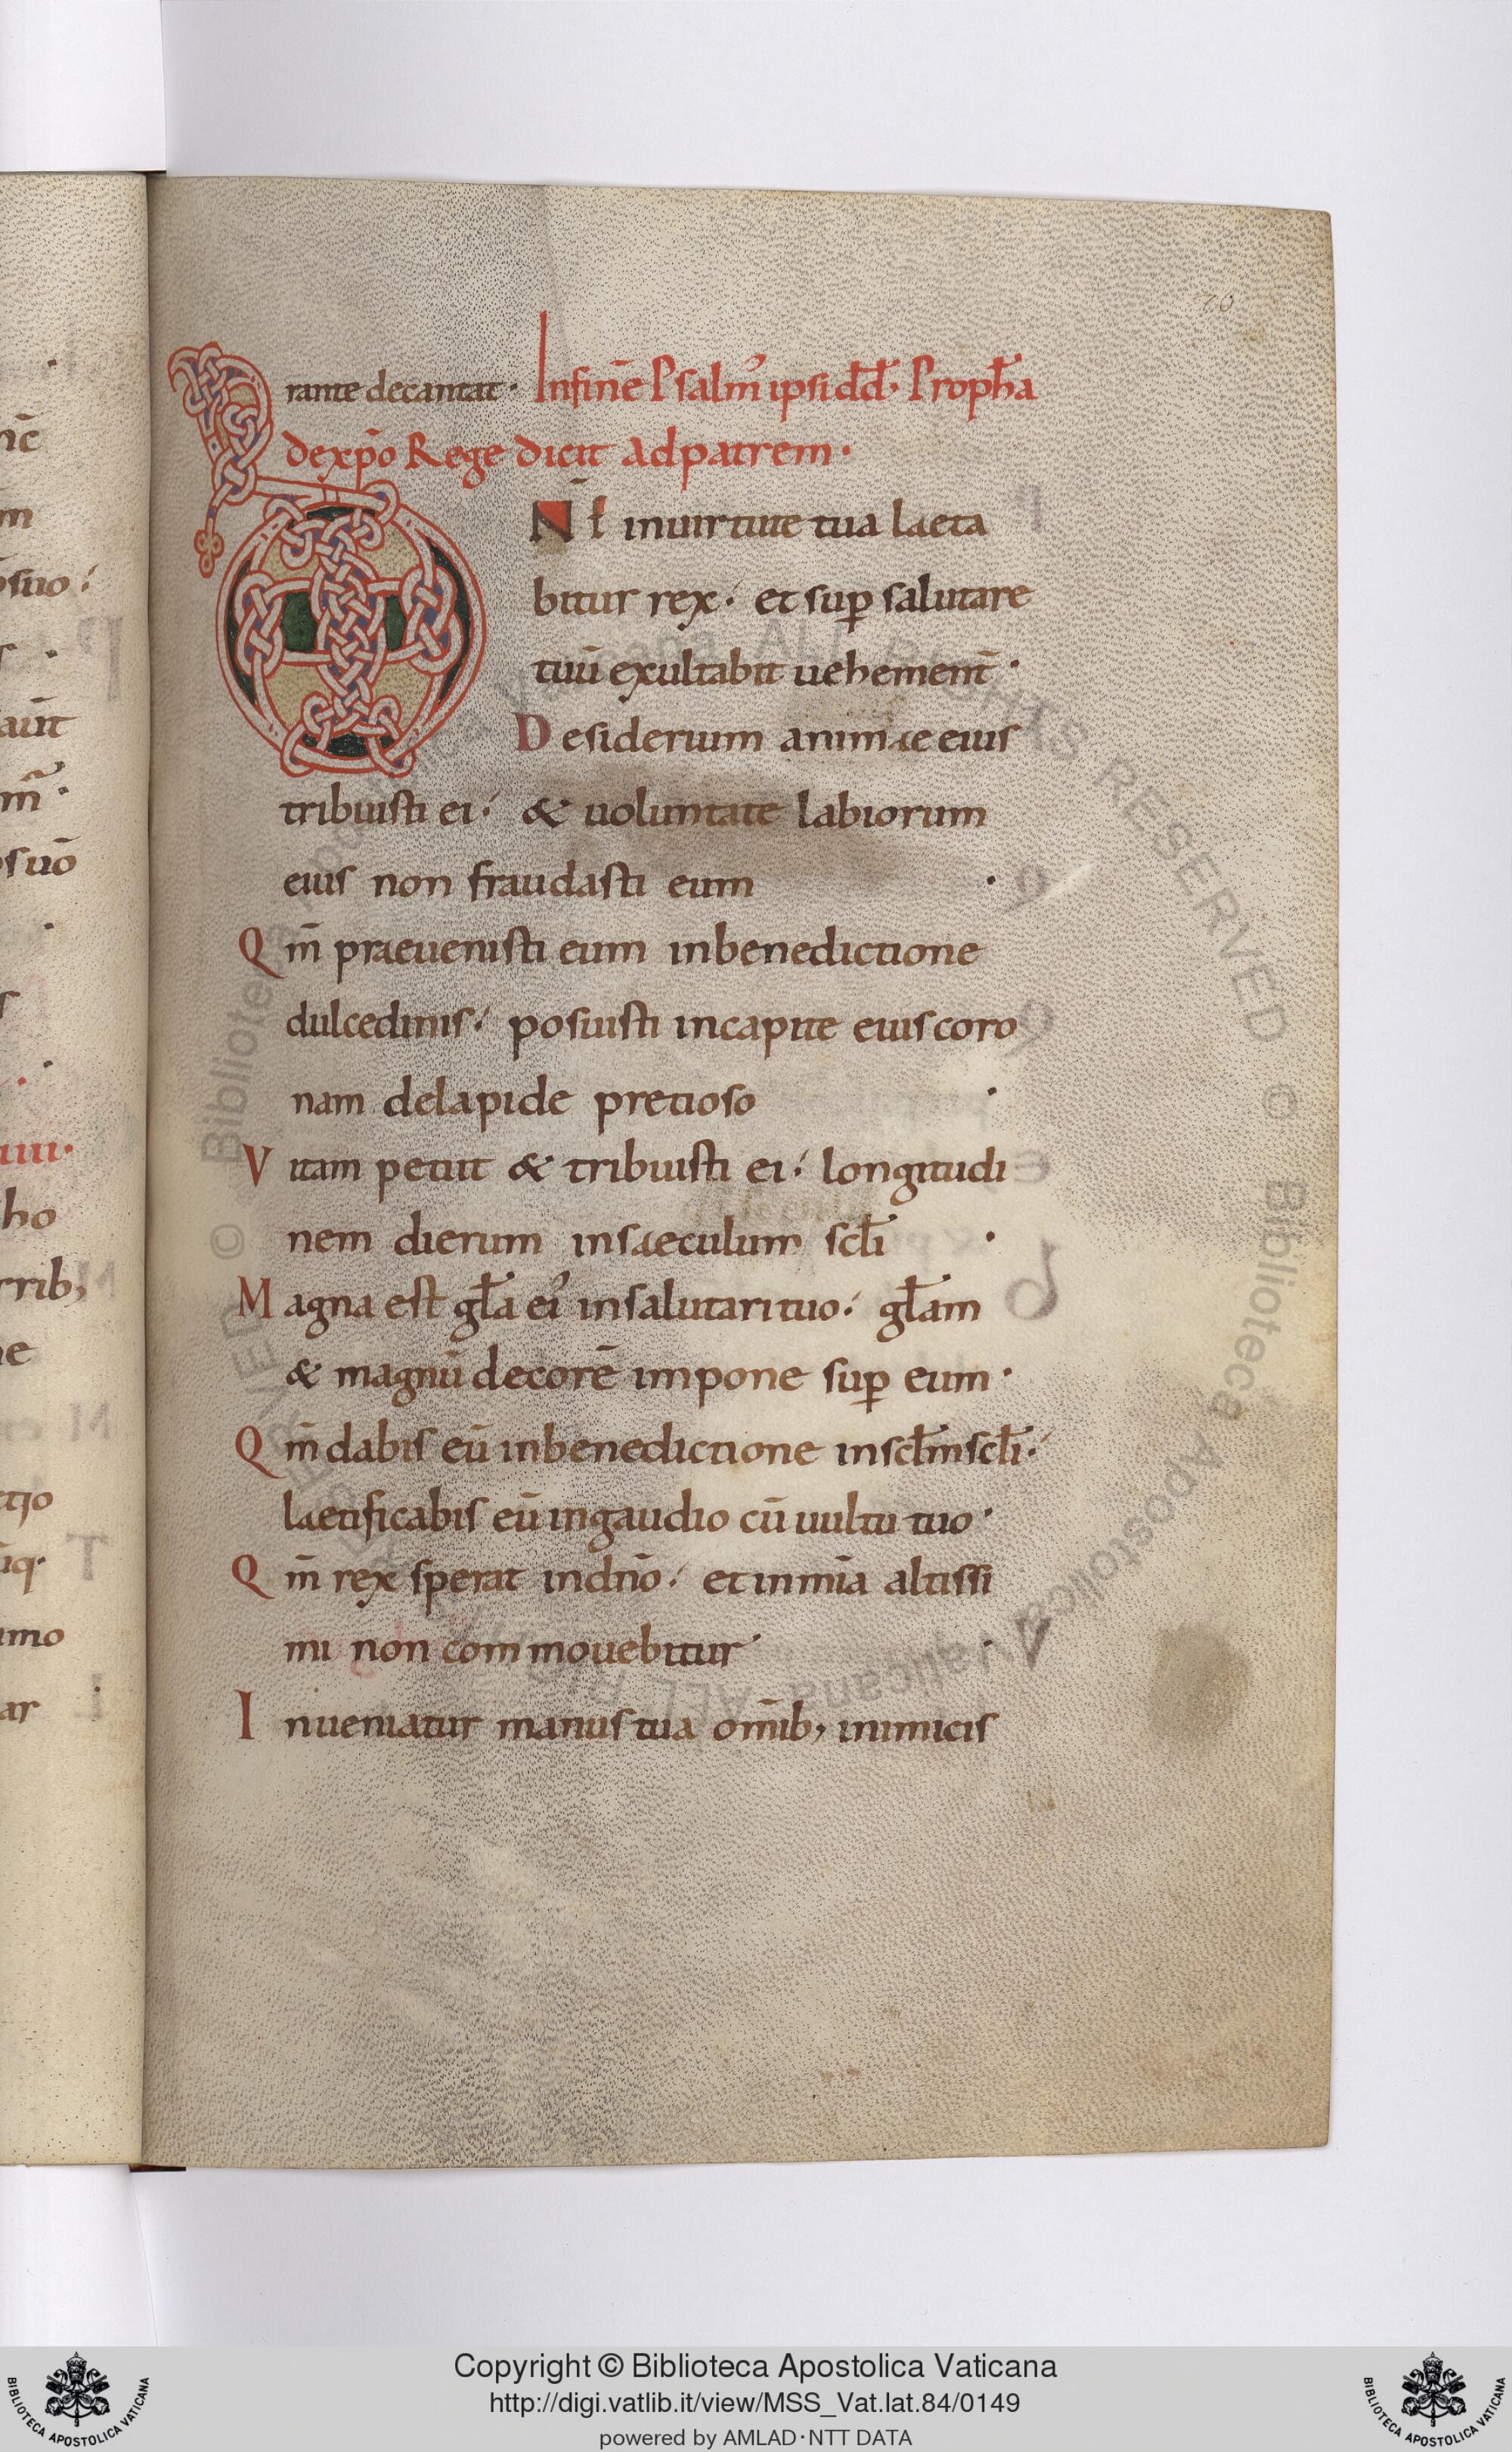 70
rante decantat· Infinē Psalmꝰ ipsi dđ· Proph̄a
dexp̄o Rege dicit ad patrem·
D N̄E inuirtute tua laeta
bitur rex· et suꝑ salutare
tuū exultabit uehement̄·
Desiderium animae eius
tribuisti ei· & uoluntate labiorum
eius non fraudasti eum ·
Qm̄ praeuenisti eum inbenedictione
dulcedinis· posuisti incapite eius coro
nam delapide pretioso ·
Vitam petiit & tribuisti ei· longitudi
nem dierum insaeculum scłi ·
Magna est gła eiꝰ insalutari tuo· głam
& magnū decorē impone suꝑ eum·
Qm̄ dabis eū inbenedictione inscłmscłi·
laetificabis eū ingaudio cū uultu tuo·
Qm̄ rex sperat indn̄o· et inmīa altissi
mi non commouebitur ·
Inueniatur manus tua om̄ib; inimicis
nc̄
m
suo·
aūt
m̄·
suō
iiii·
ho
rrib;
ne
tio
īq·
imo
ar
© Biblioteca Apostolica Vaticana ALL RIGHTS RESERVED
© Biblioteca Apostolica Vaticana ALL RIGHTS RESERVED
Copyright © Biblioteca Apostolica Vaticana
http://digi.vatlib.it/view/MSS_Vat.lat.84/0149
powered by AMLAD·NTT DATA
BIBLIOTECA APOSTOLICA VATICANA
BIBLIOTECA APOSTOLICA VATICANA